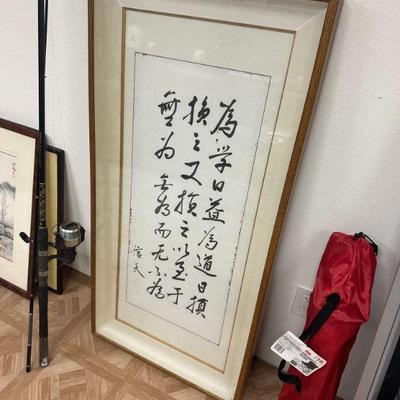 為学日益為道日損
損之又損之以至于
無为無為而无不為
信天